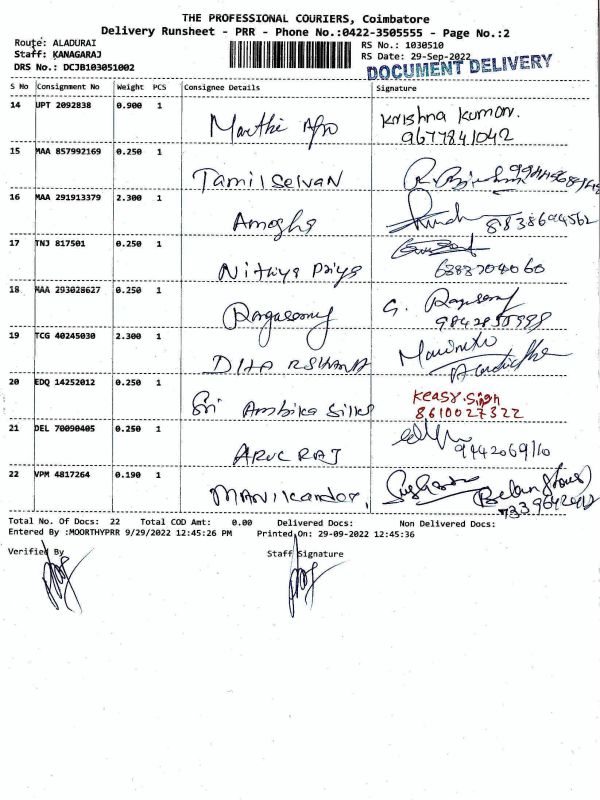 THE PROFESSIONAL COURIERS, Coimbatore
Delivery Runsheet - PRR - Phone No.:0422-3505555 - Page No.:2
Route: ALADURAI
Staff: KANAGARAJ
DRS No.: DCJB103051002
RS No.: 1030510
RS Date: 29-Sep-2022
DOCUMENT DELIVERY
S No Consignment No Weight PCS Consignee Details Signature
14 UPT 2092838 0.900 1
Krishna Kumar.
9677841042
15 MAA 857992169 0.250 1
Tamilselvan
16 MAA 291913379 2.300 1
Amogha
8838694562
17 TNJ 817501 0.250 1
Nithiya Priya
6383704060
18 MAA 293028627 0.250 1
Ragasamy
G. Ragasamy
19 TCG 40245030 2.300 1
20 EDQ 14252012 0.250 1
Sri Ambika Silks
8610027322
21 DEL 70090405 0.250 1
ARUL RAJ
22 VPM 4817264 0.190 1
Total No. Of Docs: 22 Total COD Amt: 0.00 Delivered Docs: Non Delivered Docs:
Entered By :MOORTHYPRR 9/29/2022 12:45:26 PM Printed On: 29-09-2022 12:45:36
Verified By Staff Signature